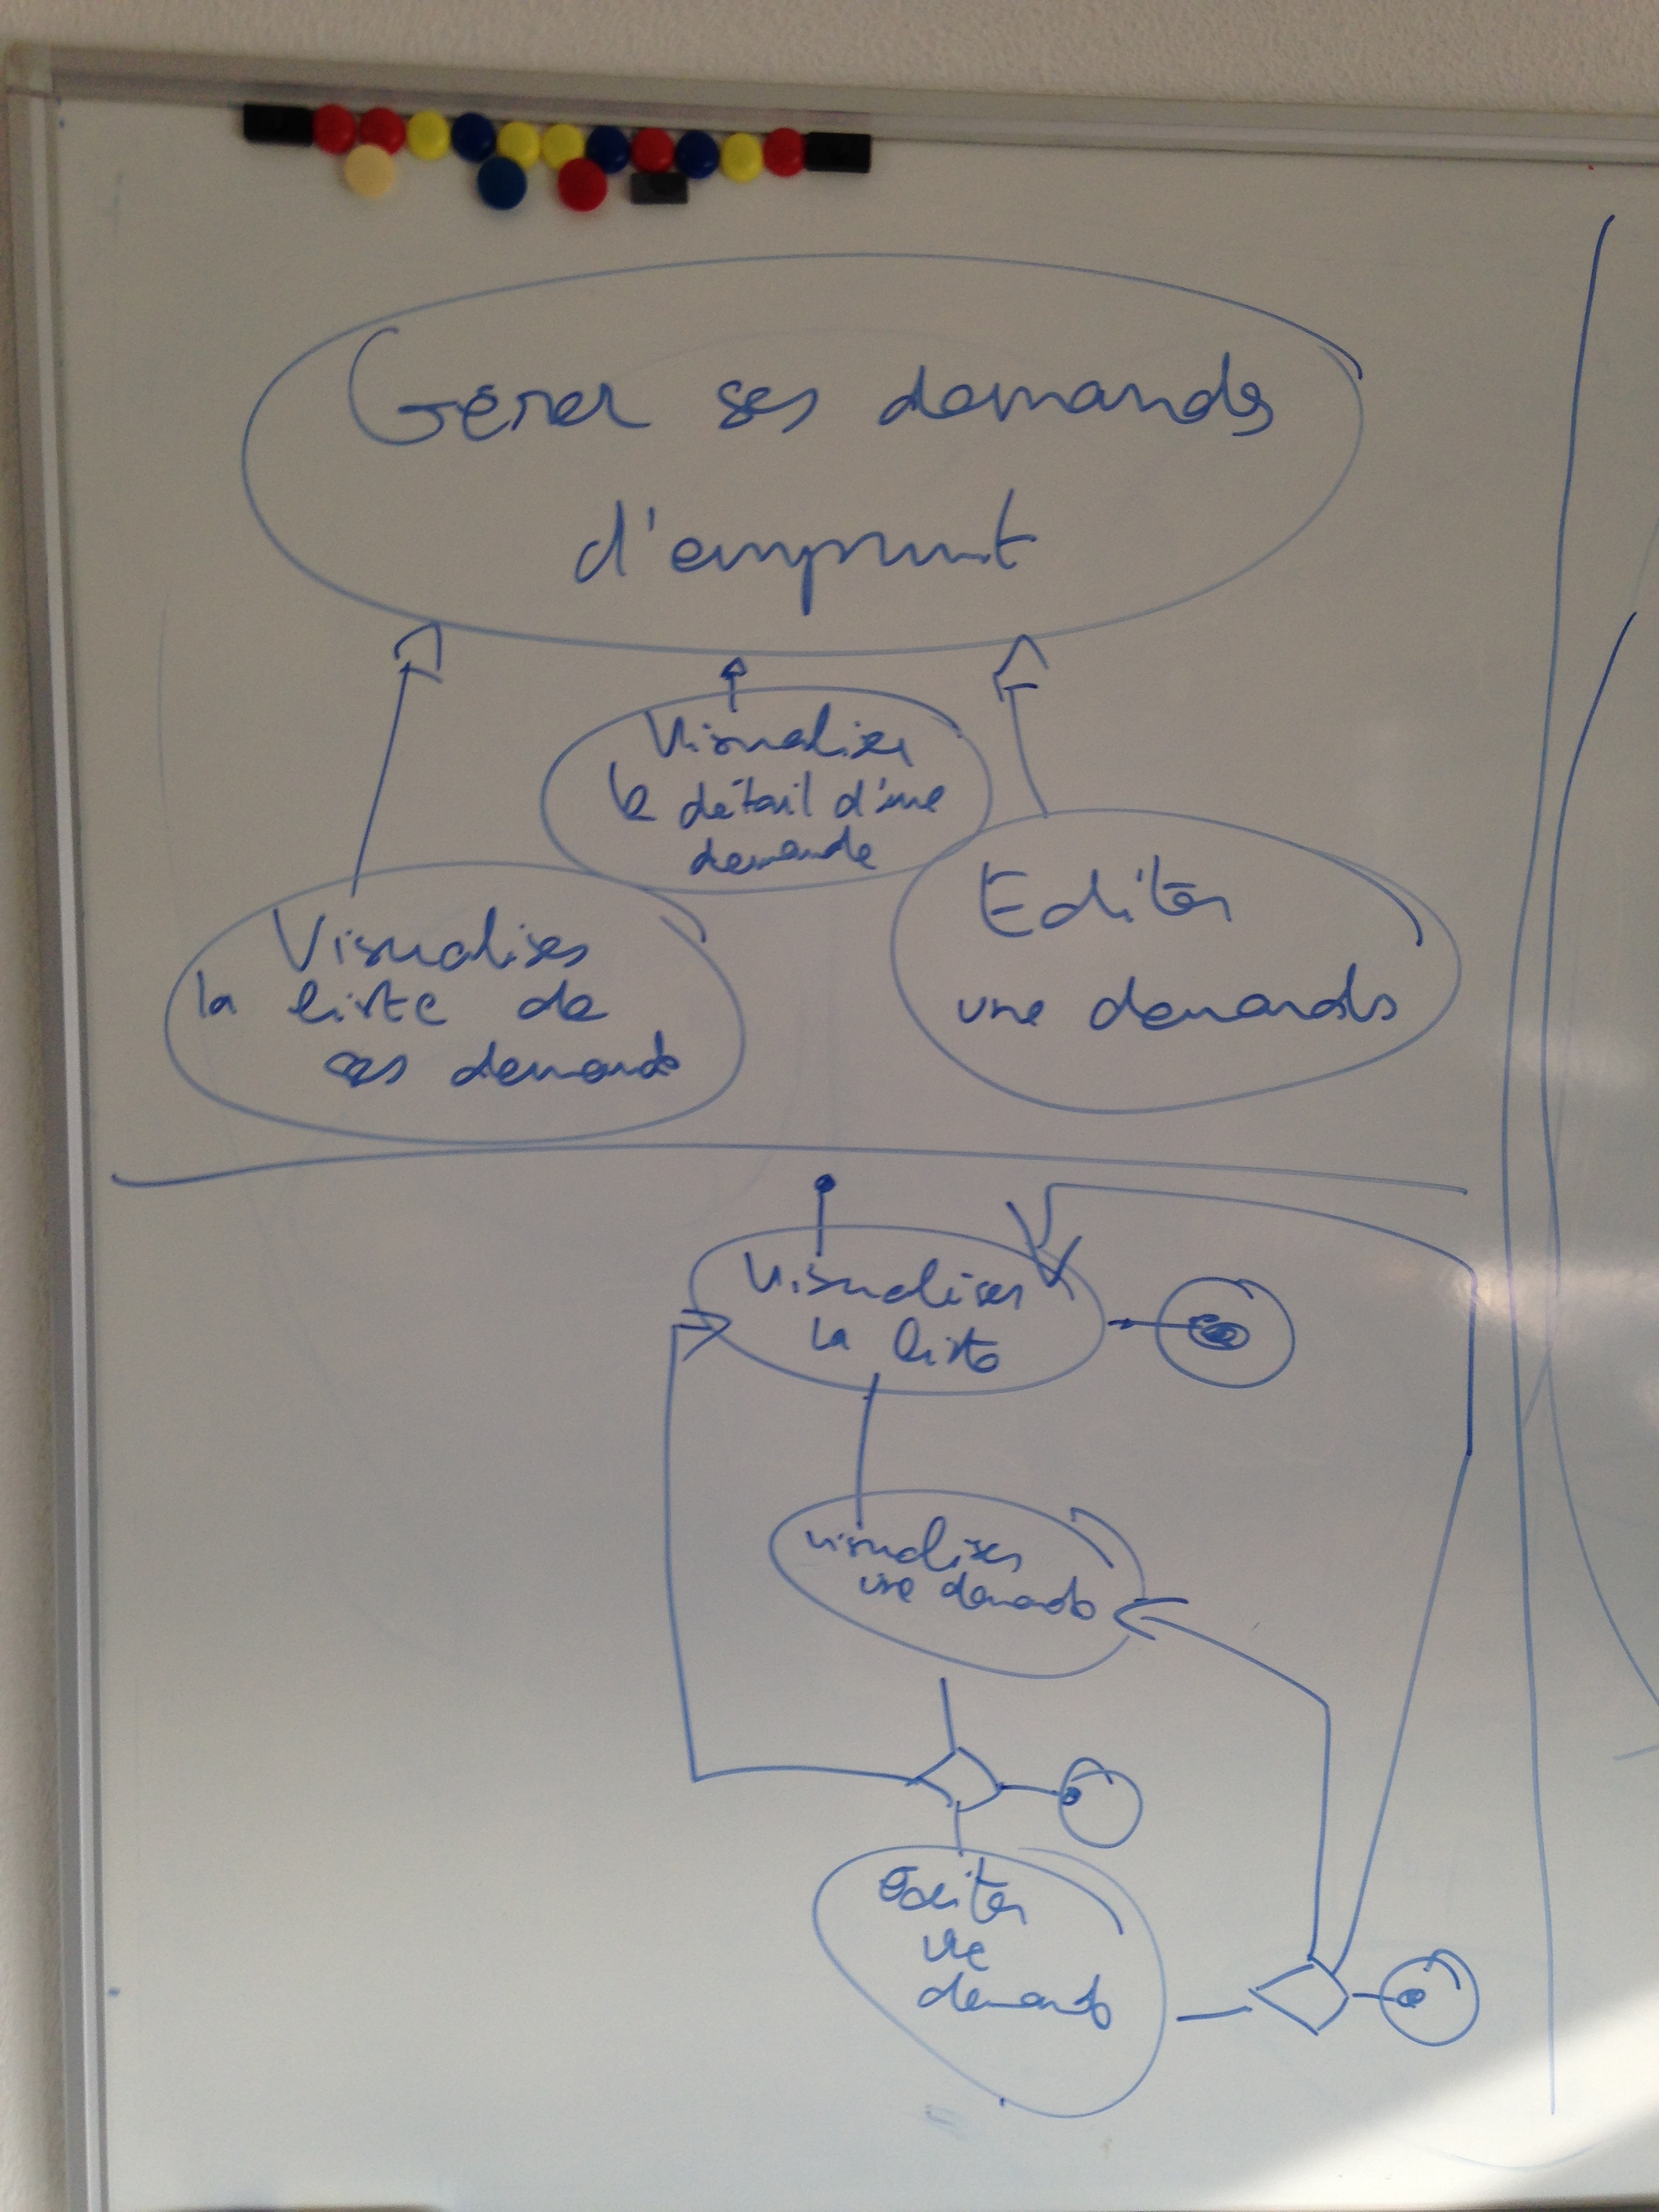 Gérer ses demandes
d'emprunt
Visualiser
le détail d'une
demande
Visualiser
la liste de
ses demandes
Editer
une demande
Visualiser
la liste
visualiser
une demande
Editer
une
demande